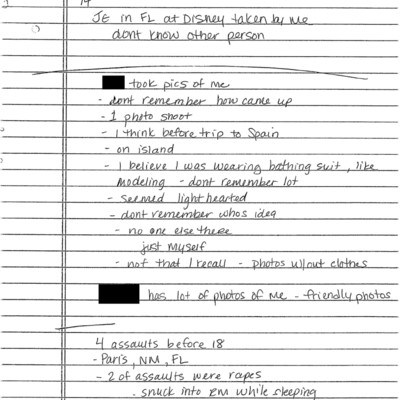 19
JE in FL at Disney taken by me
dont know other person
took pics of me
- dont remember how came up
- 1 photo shoot
- I think before trip to Spain
- on island
- I believe I was wearing bathing suit, like
modeling - dont remember lot
- seemed lighthearted
- dont remember whos idea
- no one else there
just myself
- not that I recall - photos w/out clothes
has lot of photos of me - friendly photos
4 assaults before 18
- Paris, NM, FL
- 2 of assaults were rapes
- snuck into rm while sleeping